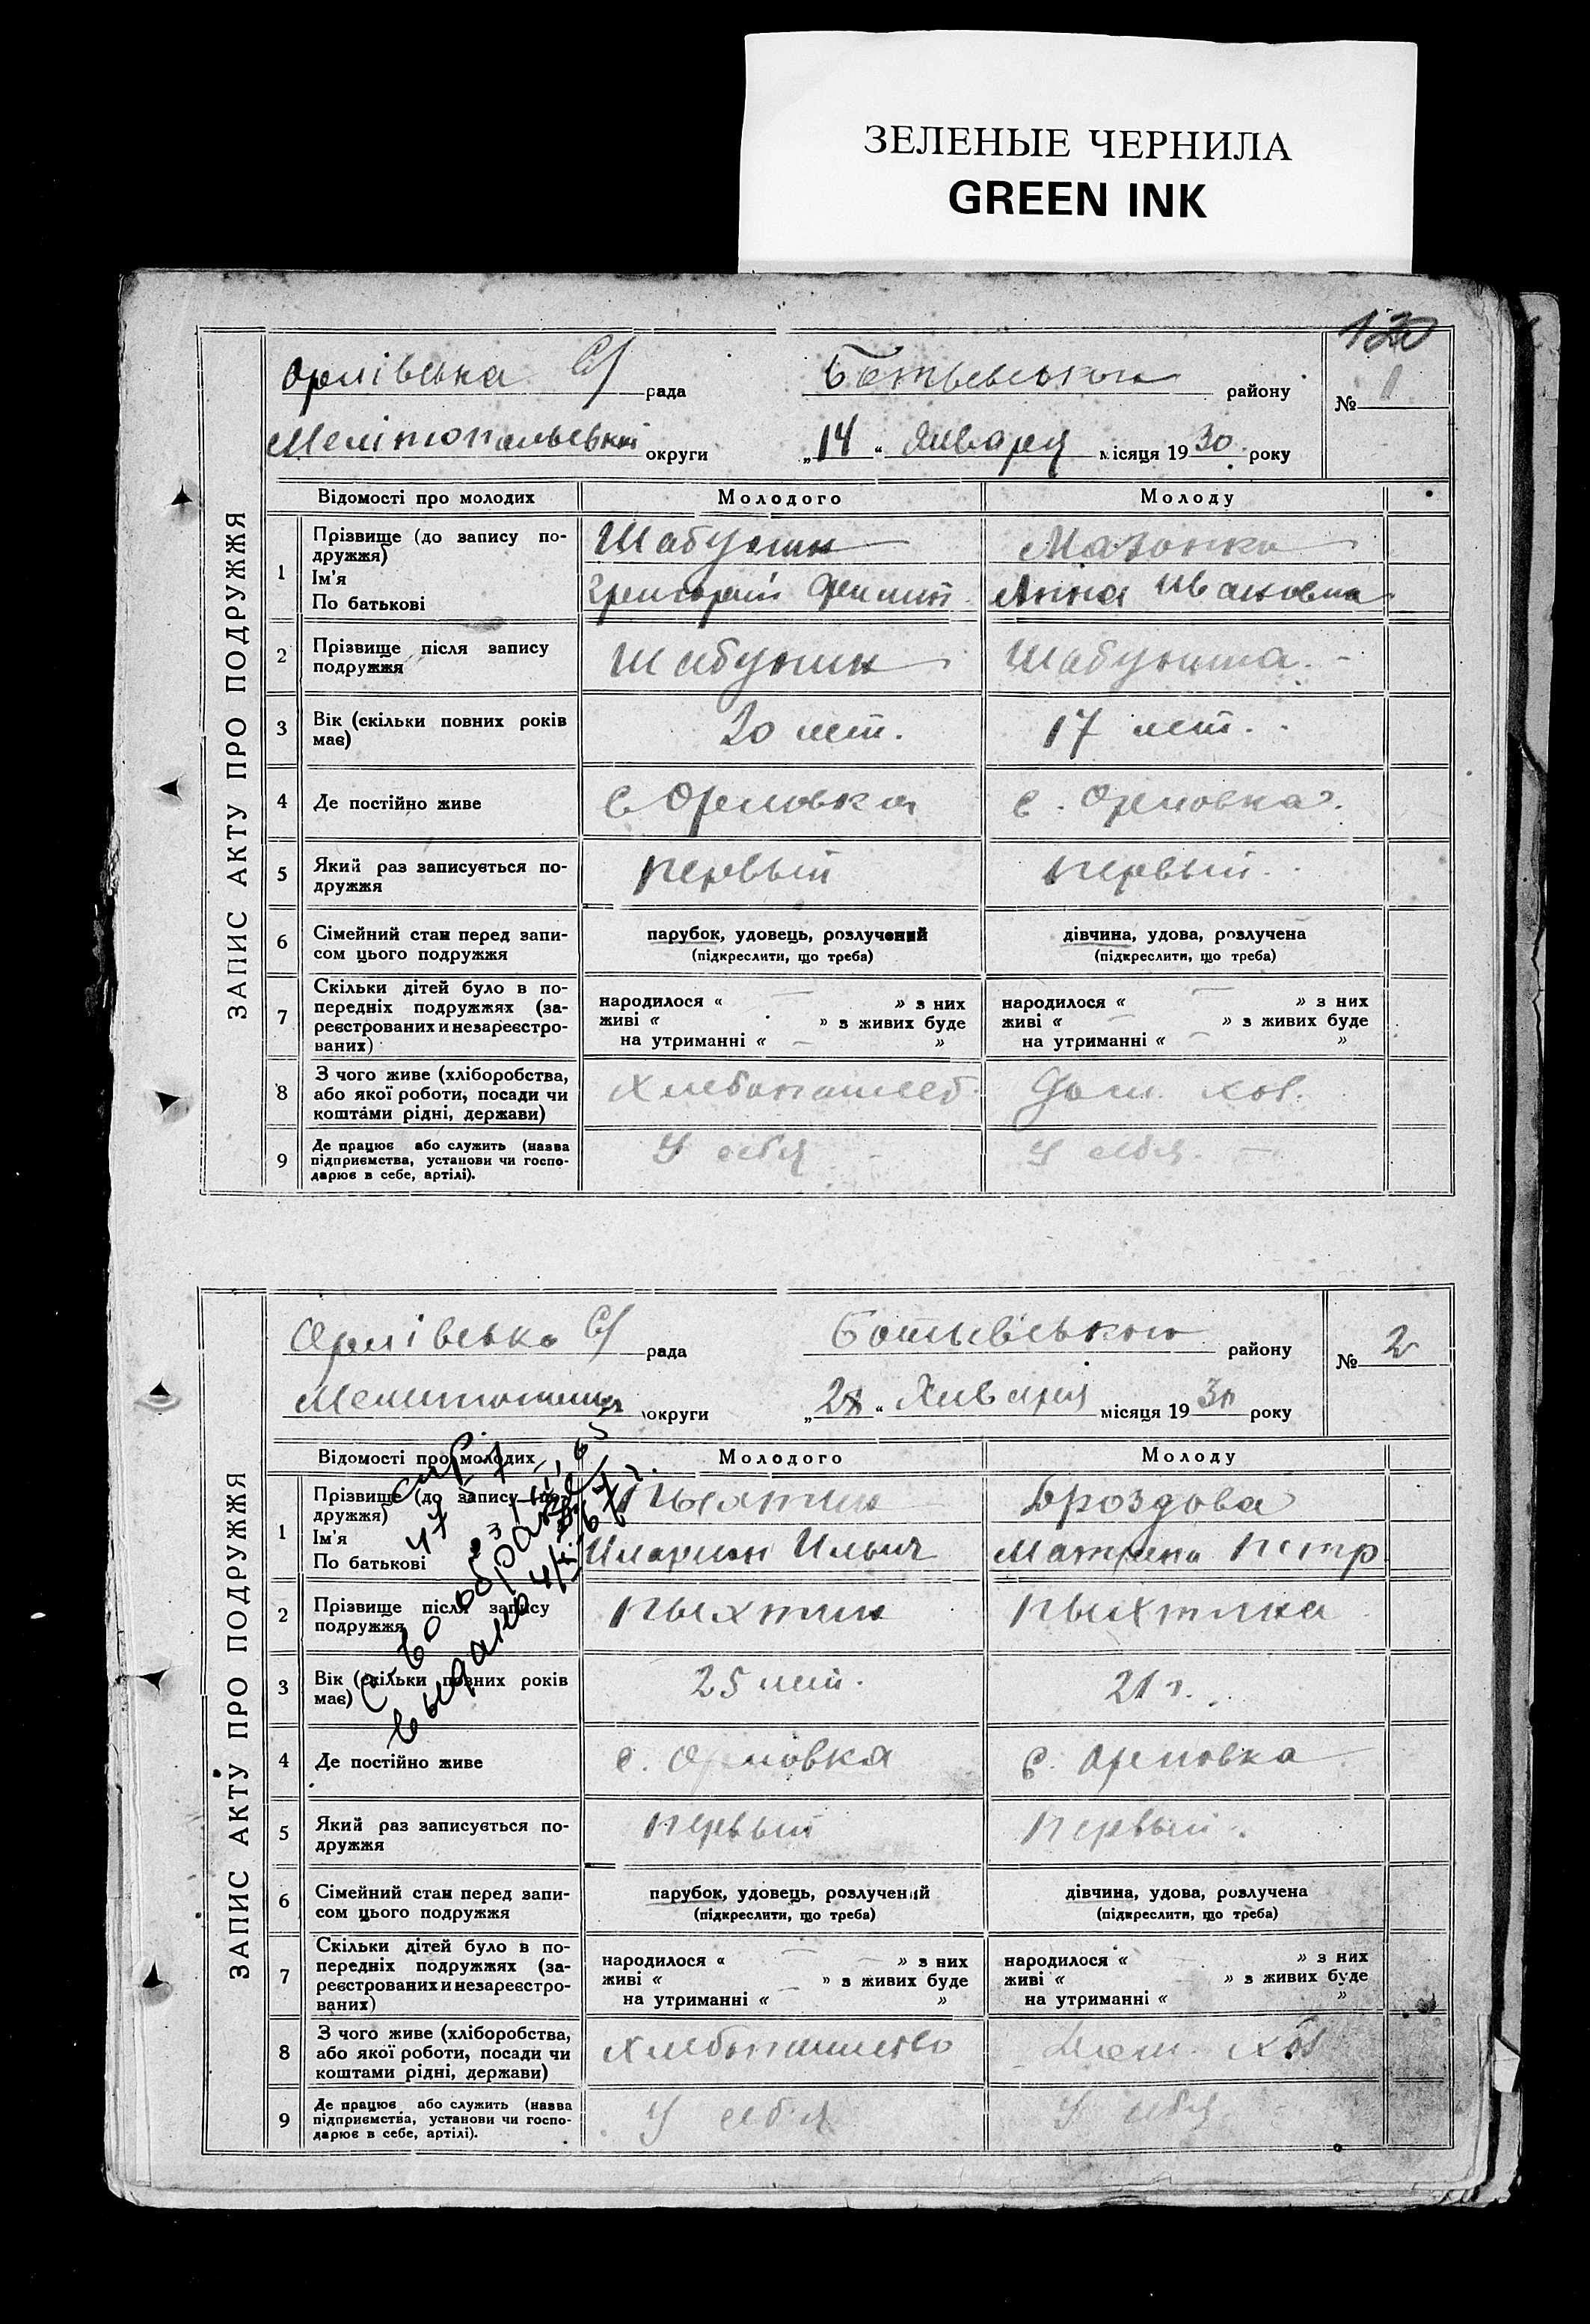 ЗЕЛЕНЫЕ ЧЕРНИЛА
GREEN INK
120
ЗАПИС АКТУ ПРО ПОДРУЖЖЯ
Орлівська С/ рада
району
№ 1
округи
„14" Января місяця 1930 року
Відомості про молодих Молодого Молоду
1 Прізвище (до запису по-
дружжя)
Ім'я
По батькові
Шабунин
Григорий
Мазонка
Анна Ивановна
2 Прізвище після запису
подружжя
Шабунин Шабунина.
3 Вік (скільки повних років
має)
20 лет. 17 лет.
4 Де постійно живе с Орловка с. Орловка.
5 Який раз записується по-
дружжя
первый первый.
6 Сімейний стан перед запи-
сом цього подружжя
парубок, удовець, розлучений
(підкреслити, що треба)
дівчина, удова, розлучена
(підкреслити, що треба)
7 Скільки дітей було в по-
передніх подружжях (за-
реєстрованих и незареєстро-
ваних)
народилося « — » з них
живі « » з живих буде
на утриманні « — »
народилося « — » з них
живі « — » з живих буде
на утриманні « — »
8 З чого живе (хліборобства,
або якої роботи, посади чи
коштами рідні, держави)
Дом. хоз.
9 Де працює або служить (назва
підприємства, установи чи госпо-
дарює в себе, артілі).
У себя У себя.
ЗАПИС АКТУ ПРО ПОДРУЖЖЯ
Орлівсько С/ рада
району
№ 2
округи
Января місяця 1930 року
Відомості про молодих Молодого Молоду
1 Прізвище (до запису по-
дружжя)
Ім'я
По батькові
Пыхтин
Иларион Ильич
Дроздова
Матрена Петр
2 Прізвище після запису
подружжя
Пыхтин Пыхтина
3 Вік (скільки повних років
має)
25 лет. 21 г.
4 Де постійно живе с. Орловка с. Орловка
5 Який раз записується по-
дружжя
первый Первый.
6 Сімейний стан перед запи-
сом цього подружжя
парубок, удовець, розлучений
(підкреслити, що треба)
дівчина, удова, розлучена
(підкреслити, що треба)
7 Скільки дітей було в по-
передніх подружжях (за-
реєстрованих и незареєстро-
ваних)
народилося « — » з них
живі « » з живих буде
на утриманні « »
народилося « » з них
живі « » з живих буде
на утриманні « »
8 З чого живе (хліборобства,
або якої роботи, посади чи
коштами рідні, держави)
Хлебопашество хоз
9 Де працює або служить (назва
підприємства, установи чи госпо-
дарює в себе, артілі).
У себя У себя